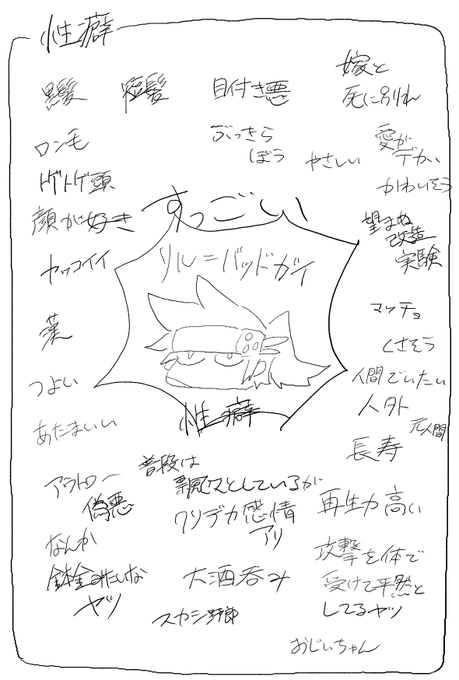 性癖
黒髪 短髪 目付き悪
嫁と
死に別れ
ロン毛
ぶっきら
ぼう
やさしい
愛が
デカい
トゲトゲ頭
かわいそう
顔が好き
すっごい
望まぬ
改造
実験
ヤッコイイ
ソル=バッドガイ
マッチョ
くさそう
つよい
人間でいたい
人外
元人間
性癖
あたまいい
長寿
アウトロー
偽悪
普段は
飄々としているが
クソデカ感情
アリ
再生力高い
なんか
鉢金みたいな
ヤツ
大酒呑み
攻撃を体で
受けて平然と
してるヤツ
スカシ野郎
おじいちゃん